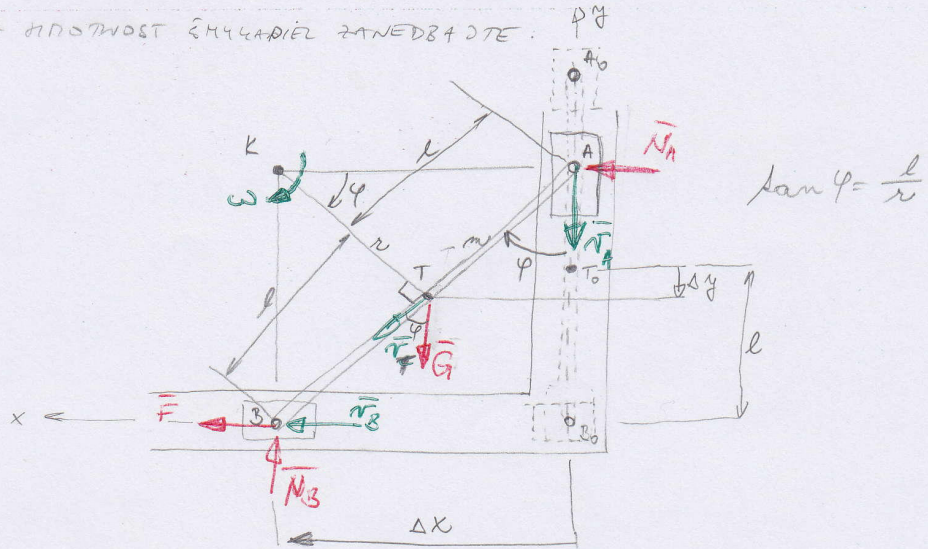 - HMOTNOSŤ ŠMYKADIEL ZANEDBAJTE.
y
A₀
K
l
A
N̄_A
φ
ω
tan φ = l/r
r
m
v̄_A
T
φ
T₀
Δy
l
φ
v̄_T
Ḡ
l
x
F̄
B
v̄_B
B₀
N̄_B
Δx